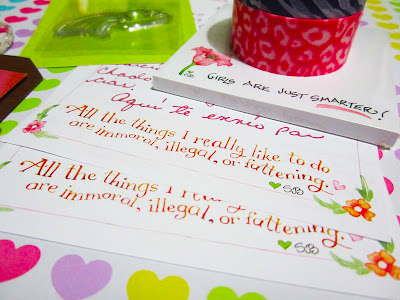 GIRLS ARE JUST SMARTER!
Aquí te envío
All the things I really like to do
are immoral, illegal, or fattening.
SCB
All the things I
are immoral, illegal, or fattening.
SCB